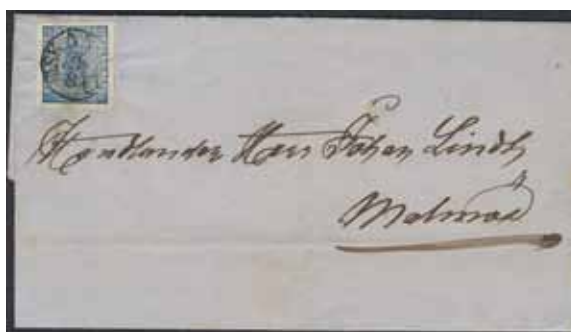 Handlanden Herr Johan Lindh
Malmö